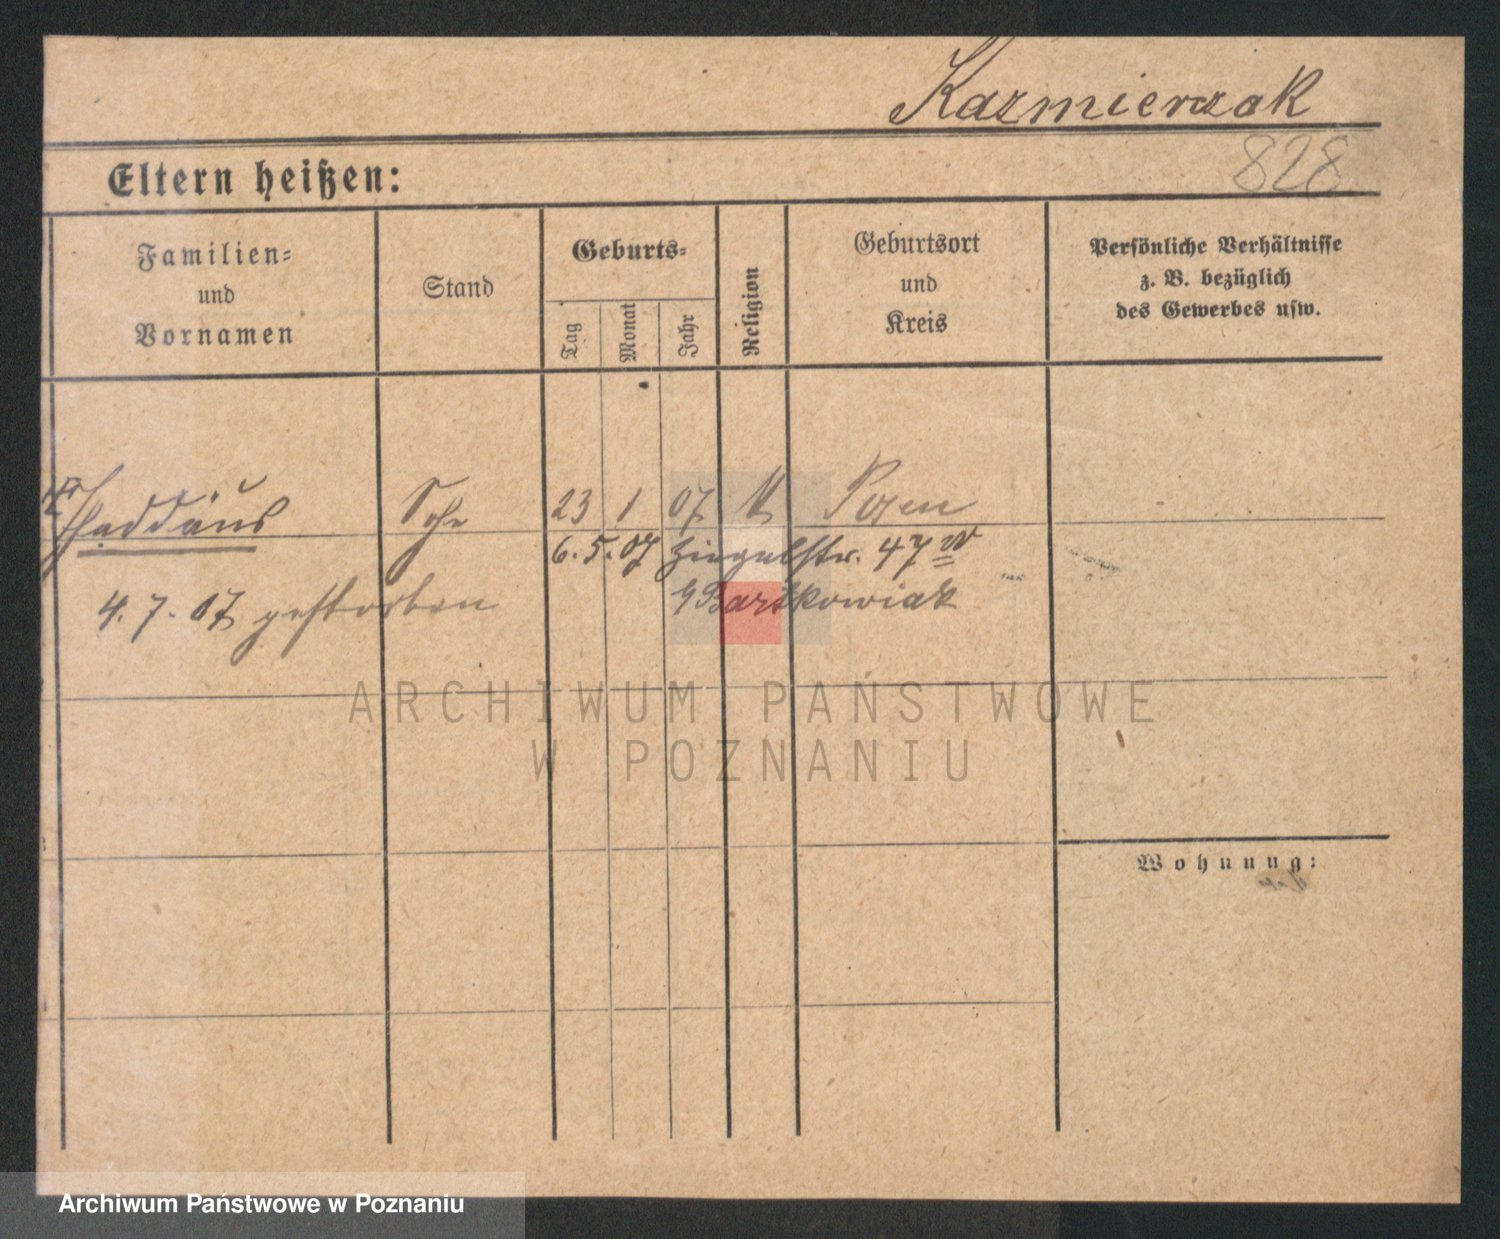 Kazmierzak
828
Eltern heißen:
Familien=
und
Vornamen
Stand
Geburts=
Tag
Monat
Jahr
Religion
Geburtsort
und
Kreis
Persönliche Verhältnisse
z. B. bezüglich
des Gewerbes usw.
Thaddäus Sohn 23 1 07 k Posen
6. 5. 07 Ziegelstr. 47
4. 7. 07 gestorben
Bartkowiak
ARCHIWUM PAŃSTWOWE
W POZNANIU
Wohnung:
Archiwum Państwowe w Poznaniu